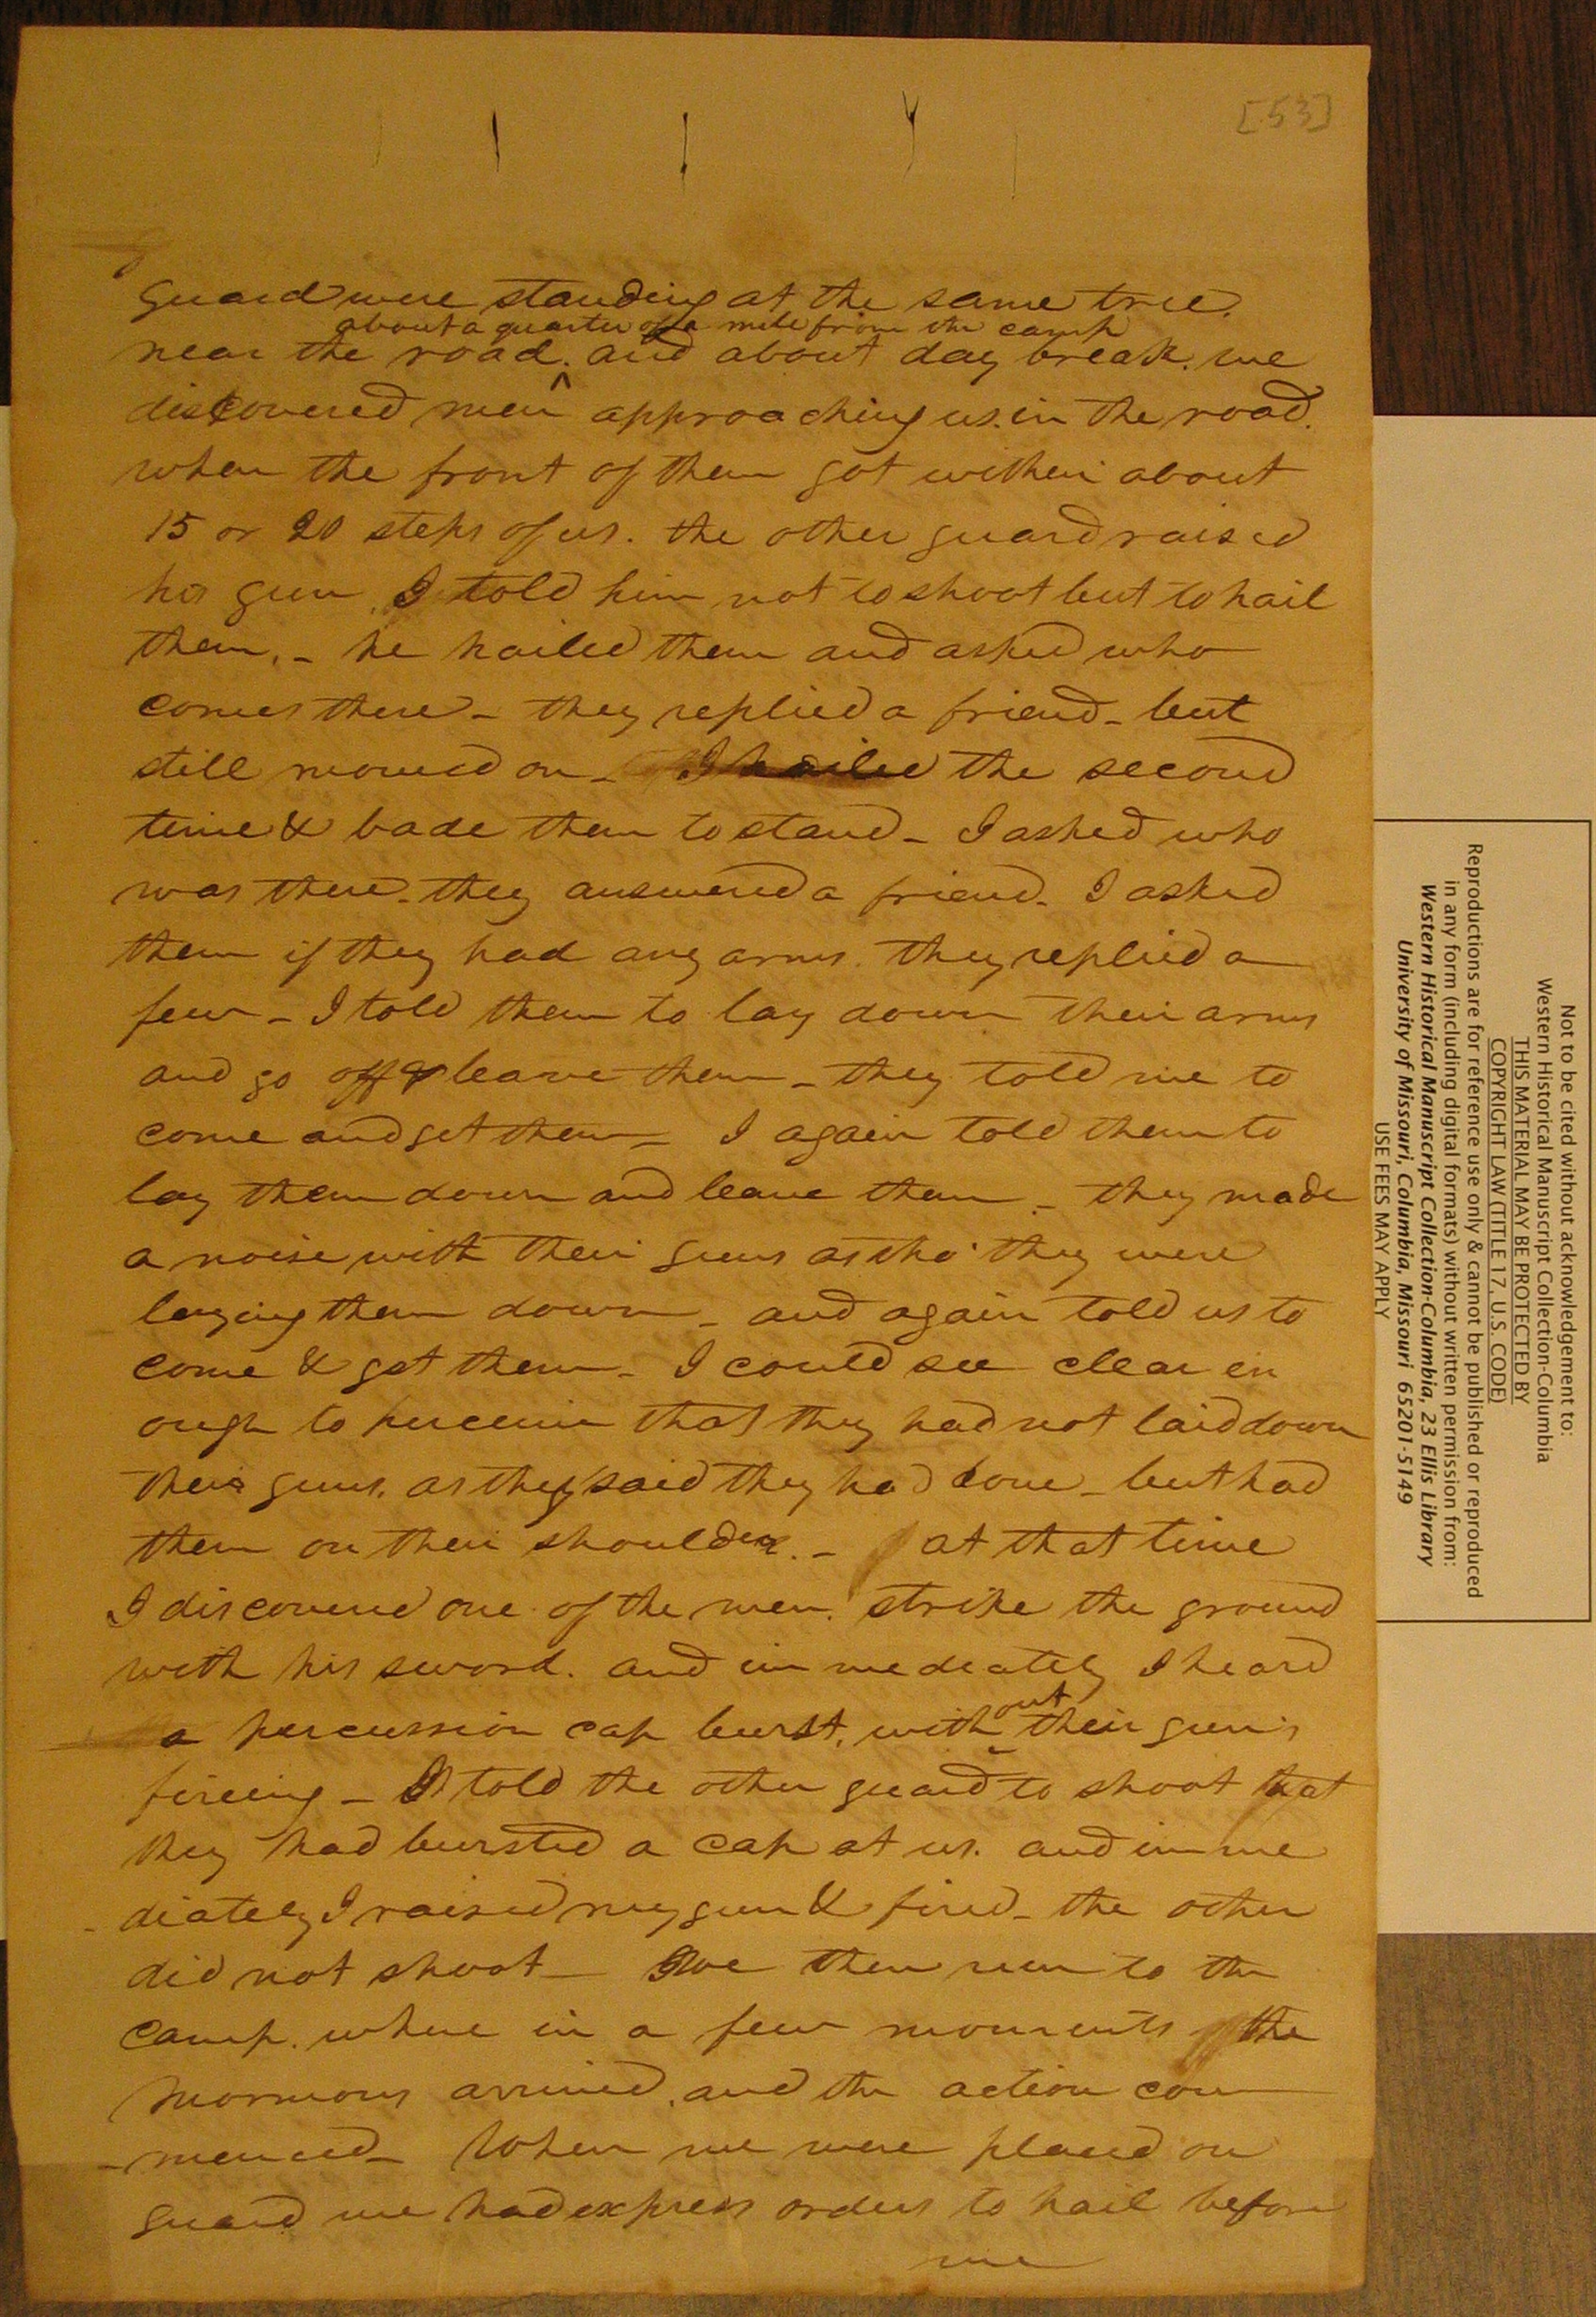 [53]
guard were standing at the same tree.
about a quarter of a mile from the camp
near the road. and about day break. we
discovered men ^ approaching us. in the road.
when the front of them got within about
15 or 20 steps of us. the other guard raised
his gun, I told him not to shoot but to hail
them, - he hailed them and asked who
comes there - they replied a friend - but
still moved on - I hailed the second
time & bade them to stand - I asked who
was there - they answered a friend. I asked
them if they had any arms. they replied a
few - I told them to lay down their arms
and go off & leave them - they told me to
come and get them - I again told them to
lay them down and leave them - they made
a noise with their guns as tho' they were
laying them down - and again told us to
come & get them - I could see clear en
ough to perceive that they had not laid down
their guns. as they said they had done - but had
them on their shoulder. - at that time
I discovered one of the men. strike the ground
with his sword. and immediately I heard
out
a percussion cap burst, with ^ their guns
fireing - I told the other guard to shoot that
they had bursted a cap at us. and imme
diately I raised my gun & fired - the other
did not shoot - We then run to the
camp. where in a few moments the
Mormons arrived, and the action com
-menced - When we were placed on
guard we had express orders to hail before
we
Not to be cited without acknowledgement to:
Western Historical Manuscript Collection-Columbia
THIS MATERIAL MAY BE PROTECTED BY
COPYRIGHT LAW (TITLE 17, U.S. CODE)
Reproductions are for reference use only & cannot be published or reproduced
in any form (including digital formats) without written permission from:
Western Historical Manuscript Collection-Columbia, 23 Ellis Library
University of Missouri, Columbia, Missouri 65201-5149
USE FEES MAY APPLY